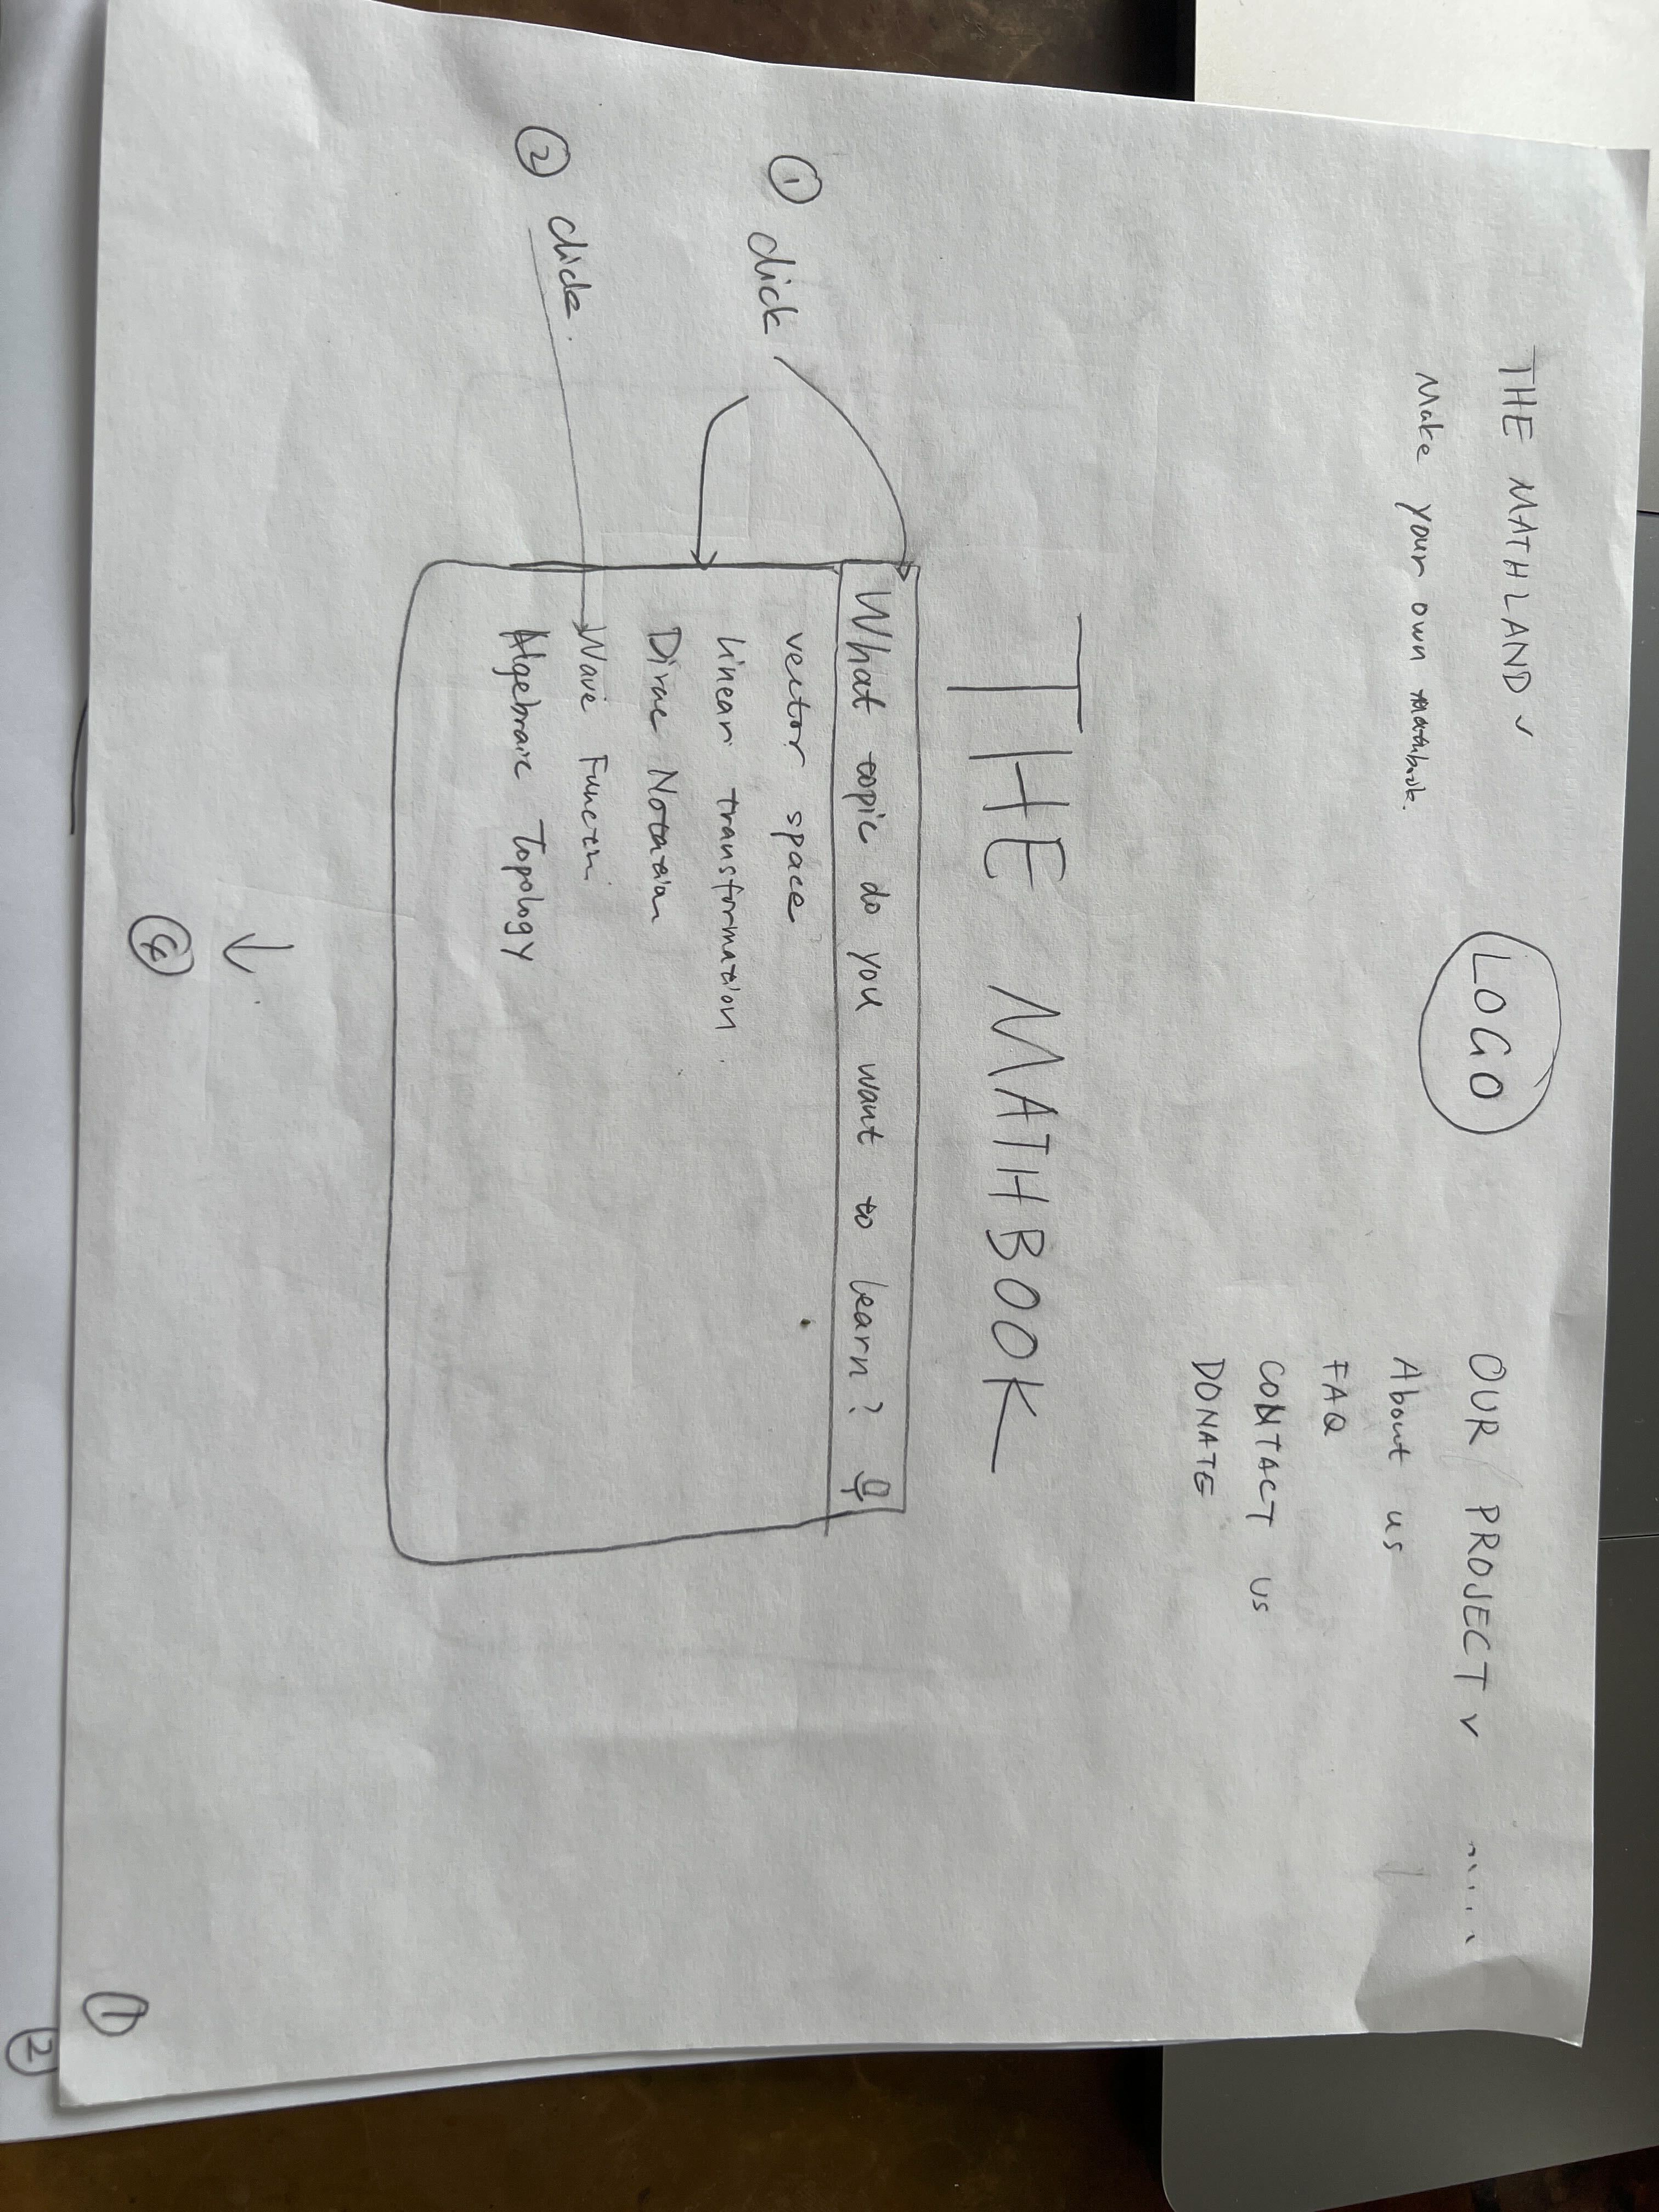 THE MATHLAND ✓
Make your own mathbook.
LOGO
OUR PROJECT ✓ .....
About us
FAQ
CONTACT US
DONATE
THE MATHBOOK
① click
What topic do you want to learn?
vector space
linear transformation
Dirac Notation
② click.
Wave Functn
Algebraic Topology
↓
④
①
②